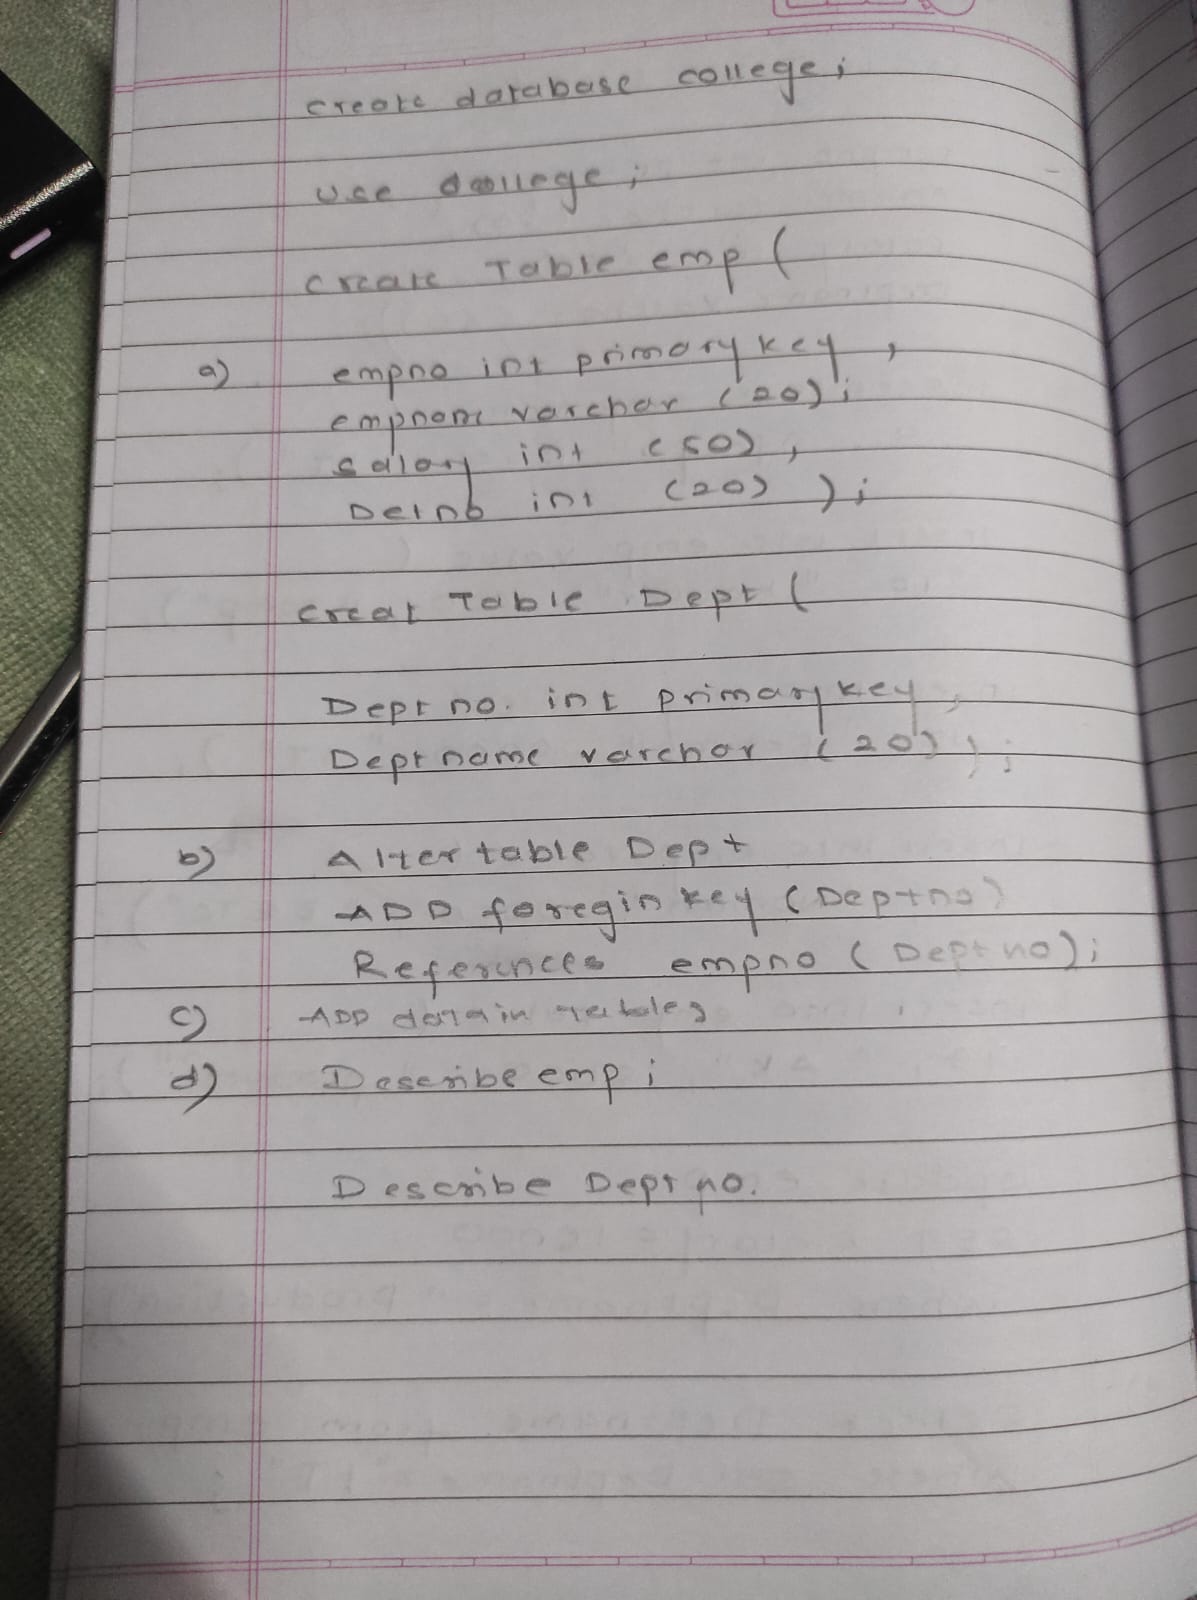 create database college;
use college;
create Table emp (
a) empno int primary key ,
empname varchar (20);
salary int (50),
int (20) );
creat Table Dept (
Dept no. int primary key,
Dept name varchar (20));
b) Alter table Dept
ADD foregin key (Deptno)
References empno (Dept no);
c) ADD data in tables
d) Describe emp;
Describe Dept no.